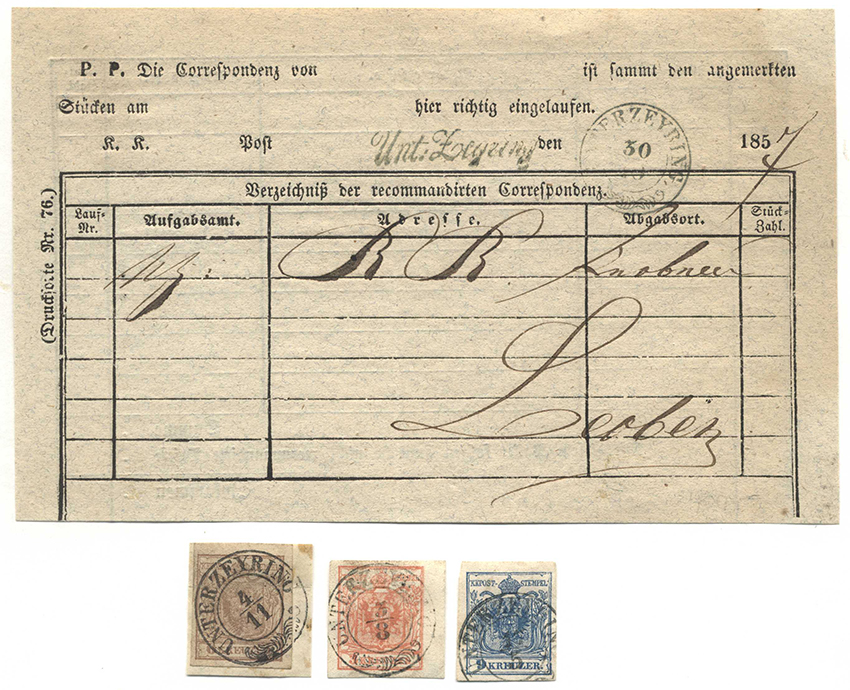 P. P. Die Correspondenz von ist sammt den angemerkten
Stücken am hier richtig eingelaufen.
K. K. Post Unt: Zeyring den 1857
UNTERZEYRING 30
(Drucksorte Nr. 76.)
Verzeichniß der recommandirten Correspondenz.
Lauf-Nr. Aufgabsamt. Adresse. Abgabsort. Stück-Zahl.
R R
Leoben
UNTERZEYRING 4/11
UNTERZEYRING 3/8
KK POST-STEMPEL
9 KREUZER.